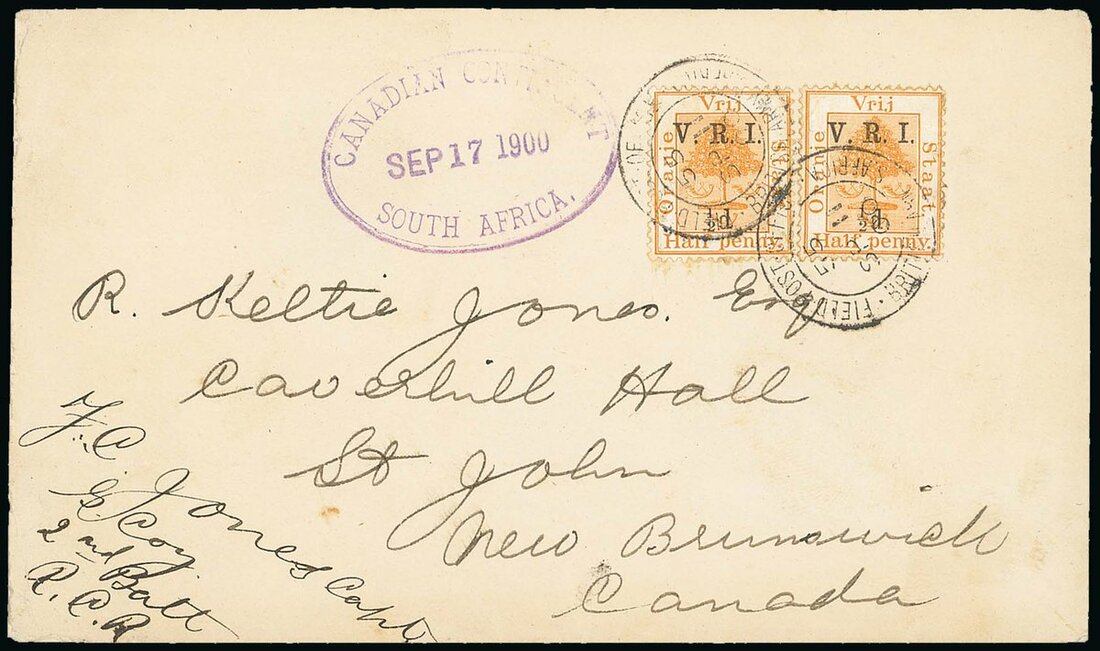 CANADIAN CONTINGENT
SEP 17 1900
SOUTH AFRICA.
Vrij
Oranje
Staat
V. R. I.
½d
Half penny.
Vrij
Oranje
Staat
V. R. I.
½d
Half penny.
FIELD POST OFFICE
R. Keltie Jones. Esq
Caverhill Hall
St John
New Brunswick
Canada
F. C. Jones Capt
G. Coy
2nd Batt
R. C. R